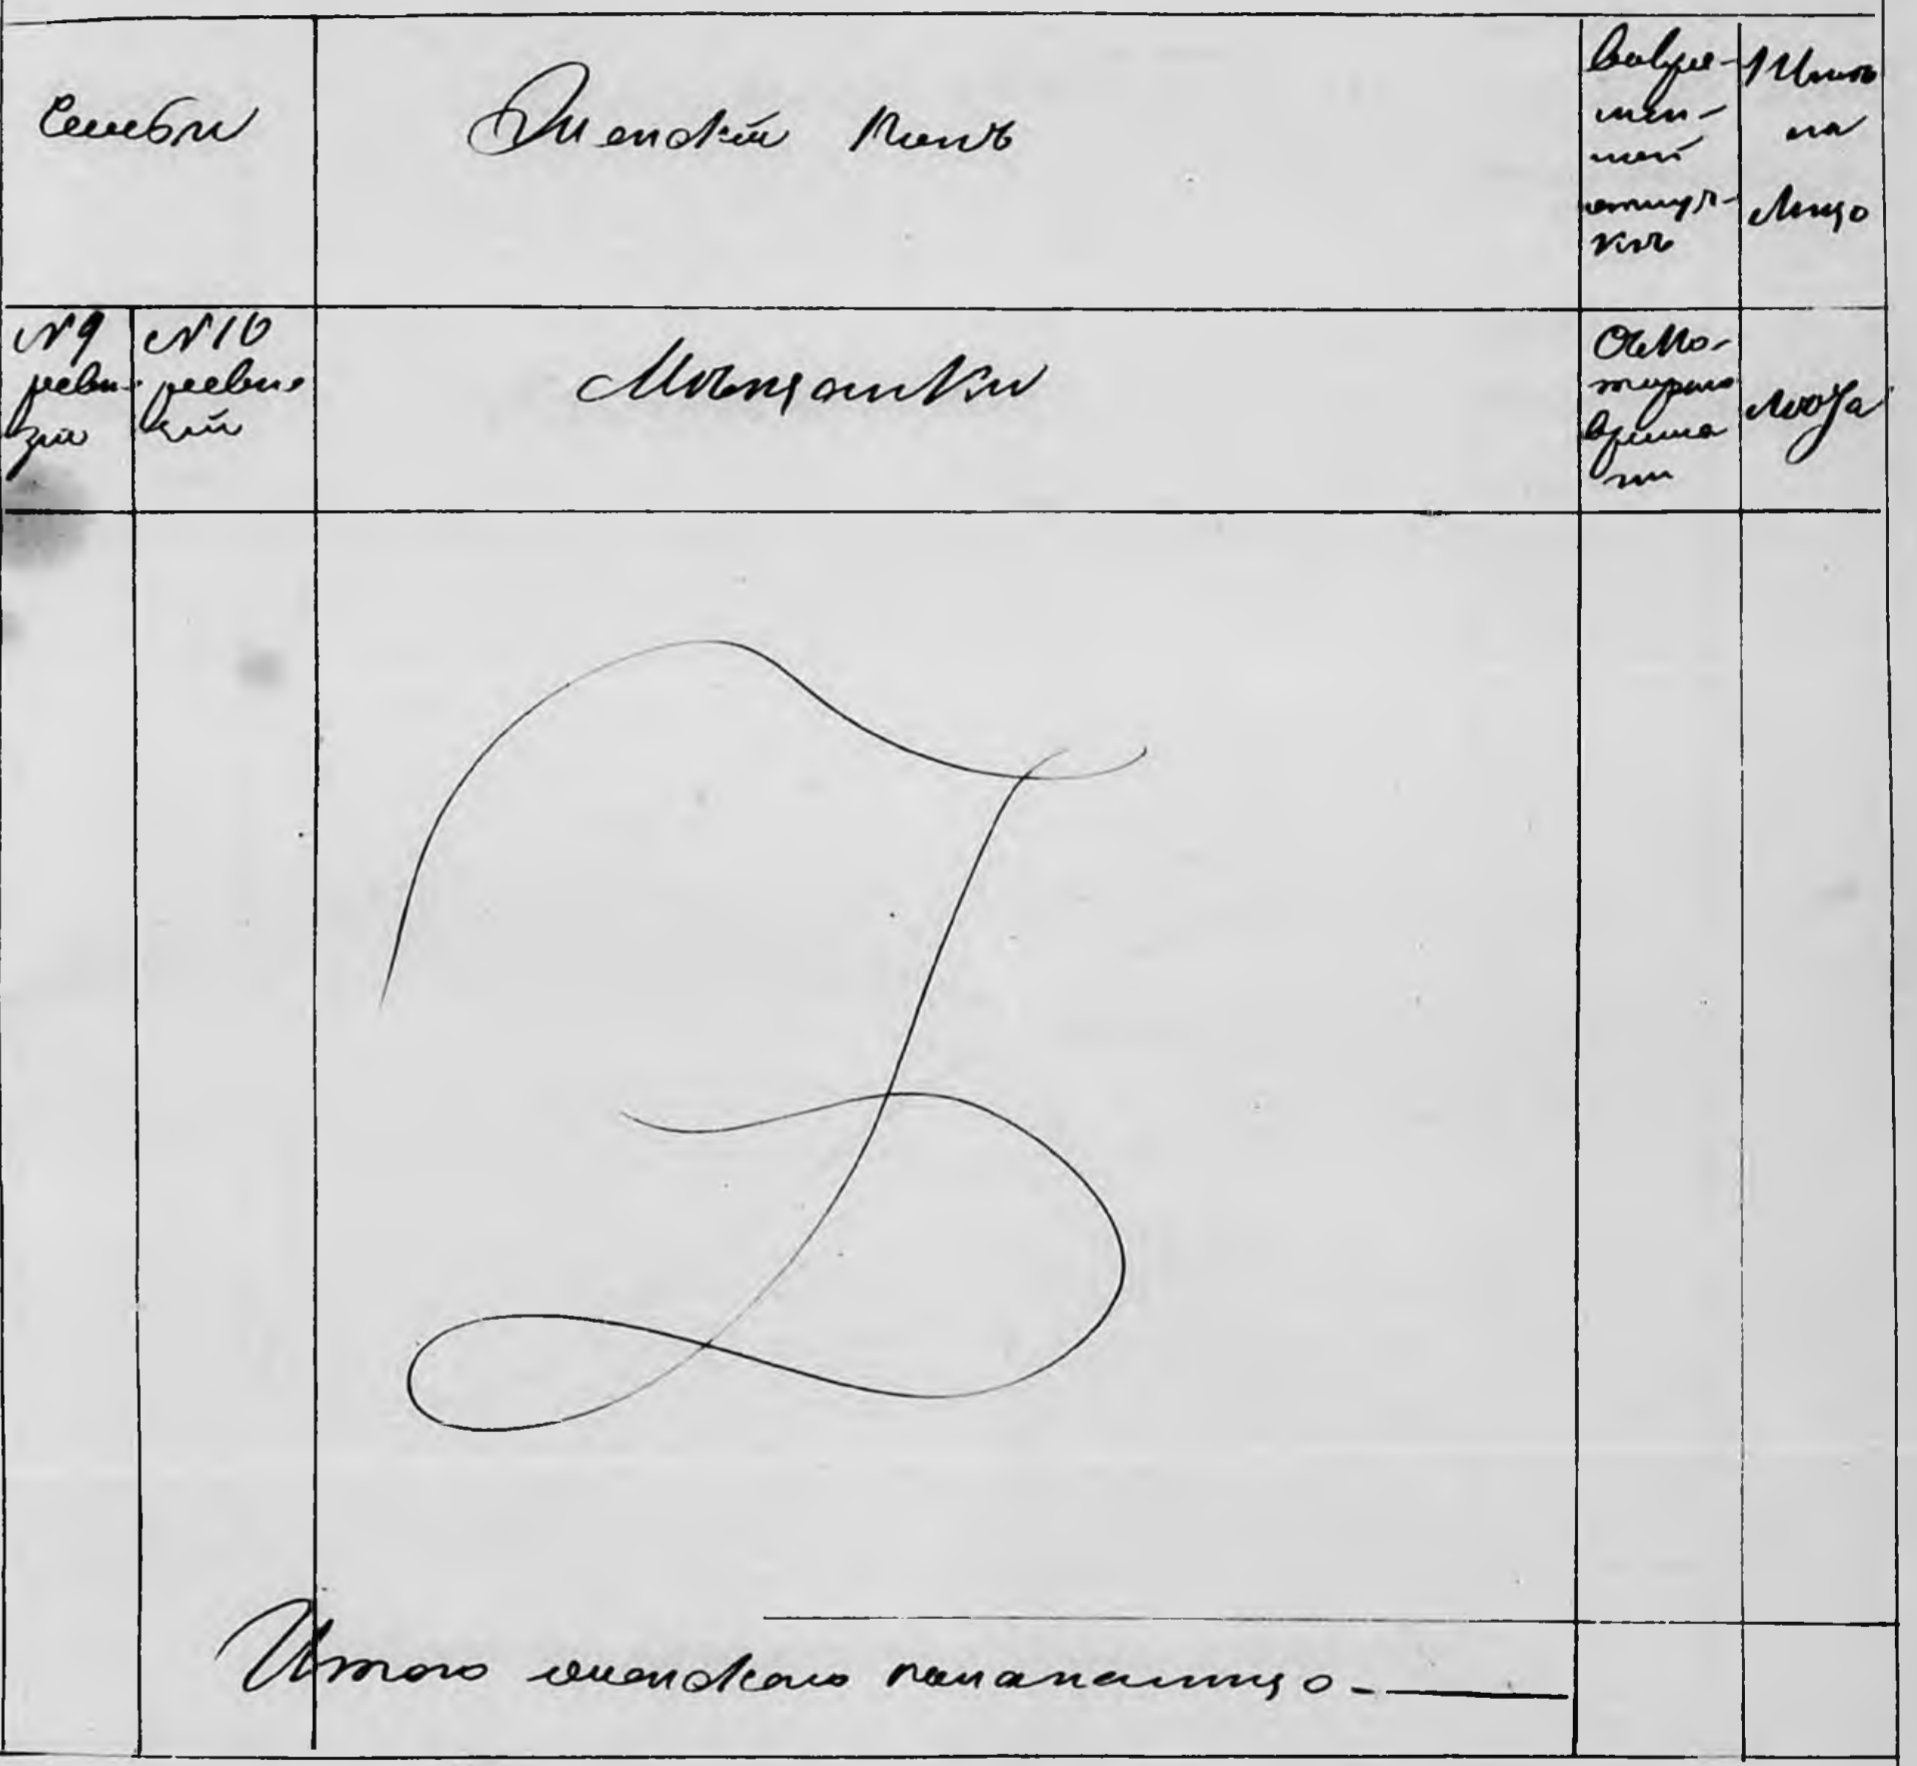 Семьи
Женскій полъ
Во вре-
мен-
ной
отлуч-
кѣ
Итого
на
лицо
№ 9
реви-
зіи
№ 10
ревиз-
зіи
Мѣщанки
Съ ко-
тораго
време
ни
лѣта
Итого женскаго пола налицо -